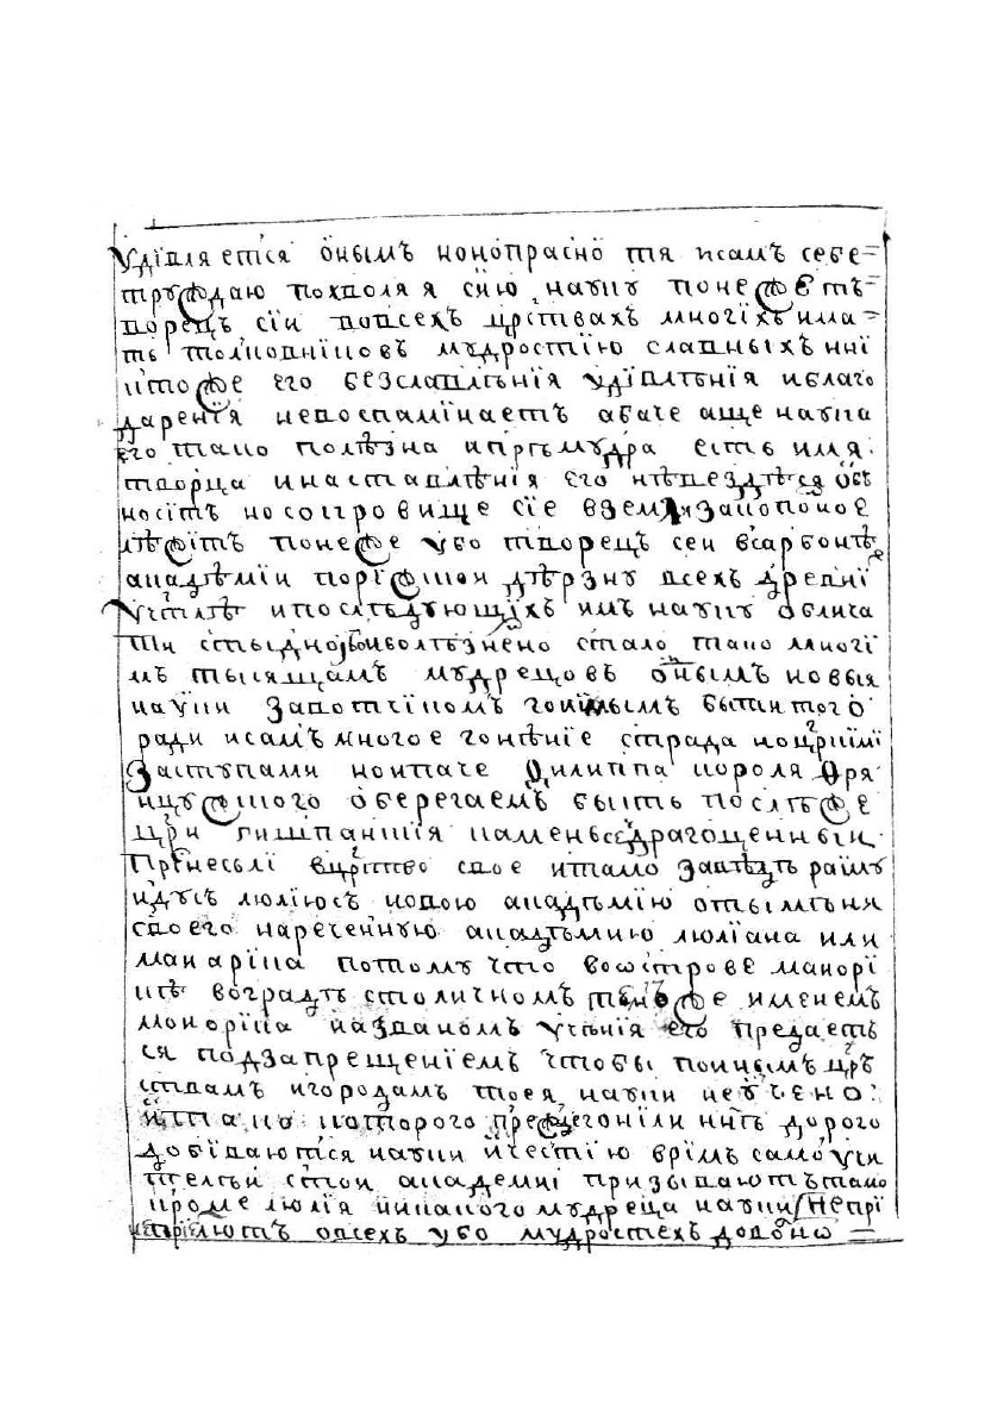 удівляется онымъ конопрасно тя исамъ себе
труждаю похволяя сию науку понежетъ
ворецъ сіи вовсехъ црствахъ многіхъ има
ть толковніковъ мудростїю славныхъ нні
ктоже его безславлѣнїя удівлѣнїя иблаго
даренїя невоспамїнаетъ абаче аще наука
его тако полѣзна ипрѣмудра есть имя
творца инаставлѣнїя его нѣвездѣся объ
носітъ но сокровище сїе вземля законопоное
лѣжітъ понеже убо творецъ сеи всарбонѣ
академїи порїжскои дѣрзну всехъ древнї
учітлѣ ипослѣдующїхъ имъ науку облича
ти стыдно иболѣзнено стало тако многї
мъ тысящамъ мудрецовъ онымъ новыя
науки заводчїкомъ гонімымъ быти того
ради исамъ многое гонѣнїе страда ноцркїмі
заступами нопаче Филиппа короля Фря
нцужского оберегаемъ бысть послѣже
цри гишпанскїя каменьсѣдрагоценныи
прїнесыі вцрство свое итамо завѣдъ раїму
ндусъ люлїюсъ новою академїю отымѣня
своего нареченную академию люлїана или
манаріка потому что воострове манорї
кѣ воградѣ столичномъ темъже именемъ
монорїка названомъ учѣнія его предаетъ
ся подзапрещенїемъ чтобы поинымъ црѣ
ствамъ игородамъ тоея науки неучено
итако которого преждегоніли ннѣ дорого
добіваются науки ичестїю врімъ само учи
тельи стои академиі призываютъ тако
кроме люлія инакого мудреца науки непрі
емлютъ овсехъ убо мудростехъ доволно